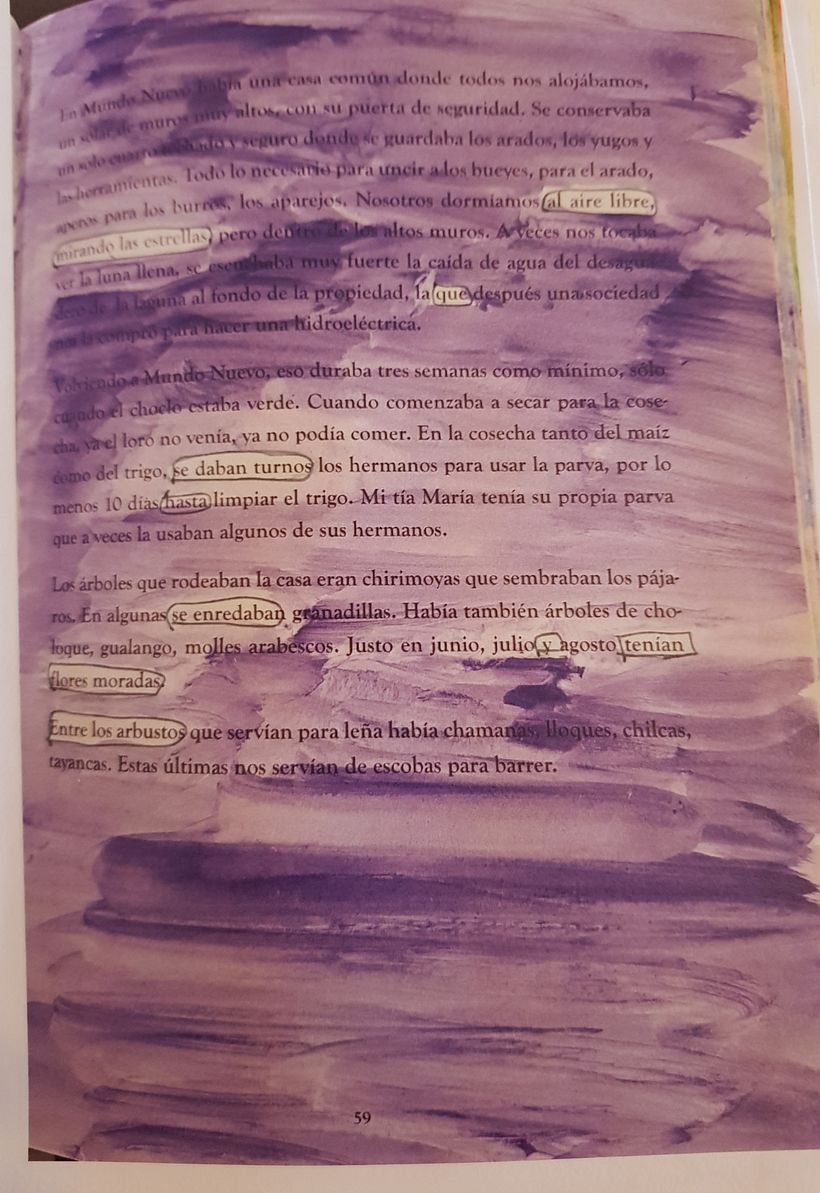 En Mundo Nuevo había una casa común donde todos nos alojábamos,
un solar de muros muy altos, con su puerta de seguridad. Se conservaba
un solo cuarto techado y seguro donde se guardaba los arados, los yugos y
las herramientas. Todo lo necesario para uncir a los bueyes, para el arado,
aperos para los burros, los aparejos. Nosotros dormíamos al aire libre,
mirando las estrellas, pero dentro de los altos muros. A veces nos tocaba
ver la luna llena, se escuchaba muy fuerte la caída de agua del desagua-
dero de la laguna al fondo de la propiedad, la que después una sociedad
nos la compró para hacer una hidroeléctrica.
Volviendo a Mundo Nuevo, eso duraba tres semanas como mínimo, sólo
cuando el choclo estaba verde. Cuando comenzaba a secar para la cose-
cha, ya el loro no venía, ya no podía comer. En la cosecha tanto del maíz
como del trigo, se daban turnos los hermanos para usar la parva, por lo
menos 10 días hasta limpiar el trigo. Mi tía María tenía su propia parva
que a veces la usaban algunos de sus hermanos.
Los árboles que rodeaban la casa eran chirimoyas que sembraban los pája-
ros. En algunas se enredaban granadillas. Había también árboles de cho-
loque, gualango, molles arabescos. Justo en junio, julio y agosto tenían
flores moradas.
Entre los arbustos que servían para leña había chamanas, lloques, chilcas,
tayancas. Estas últimas nos servían de escobas para barrer.
59